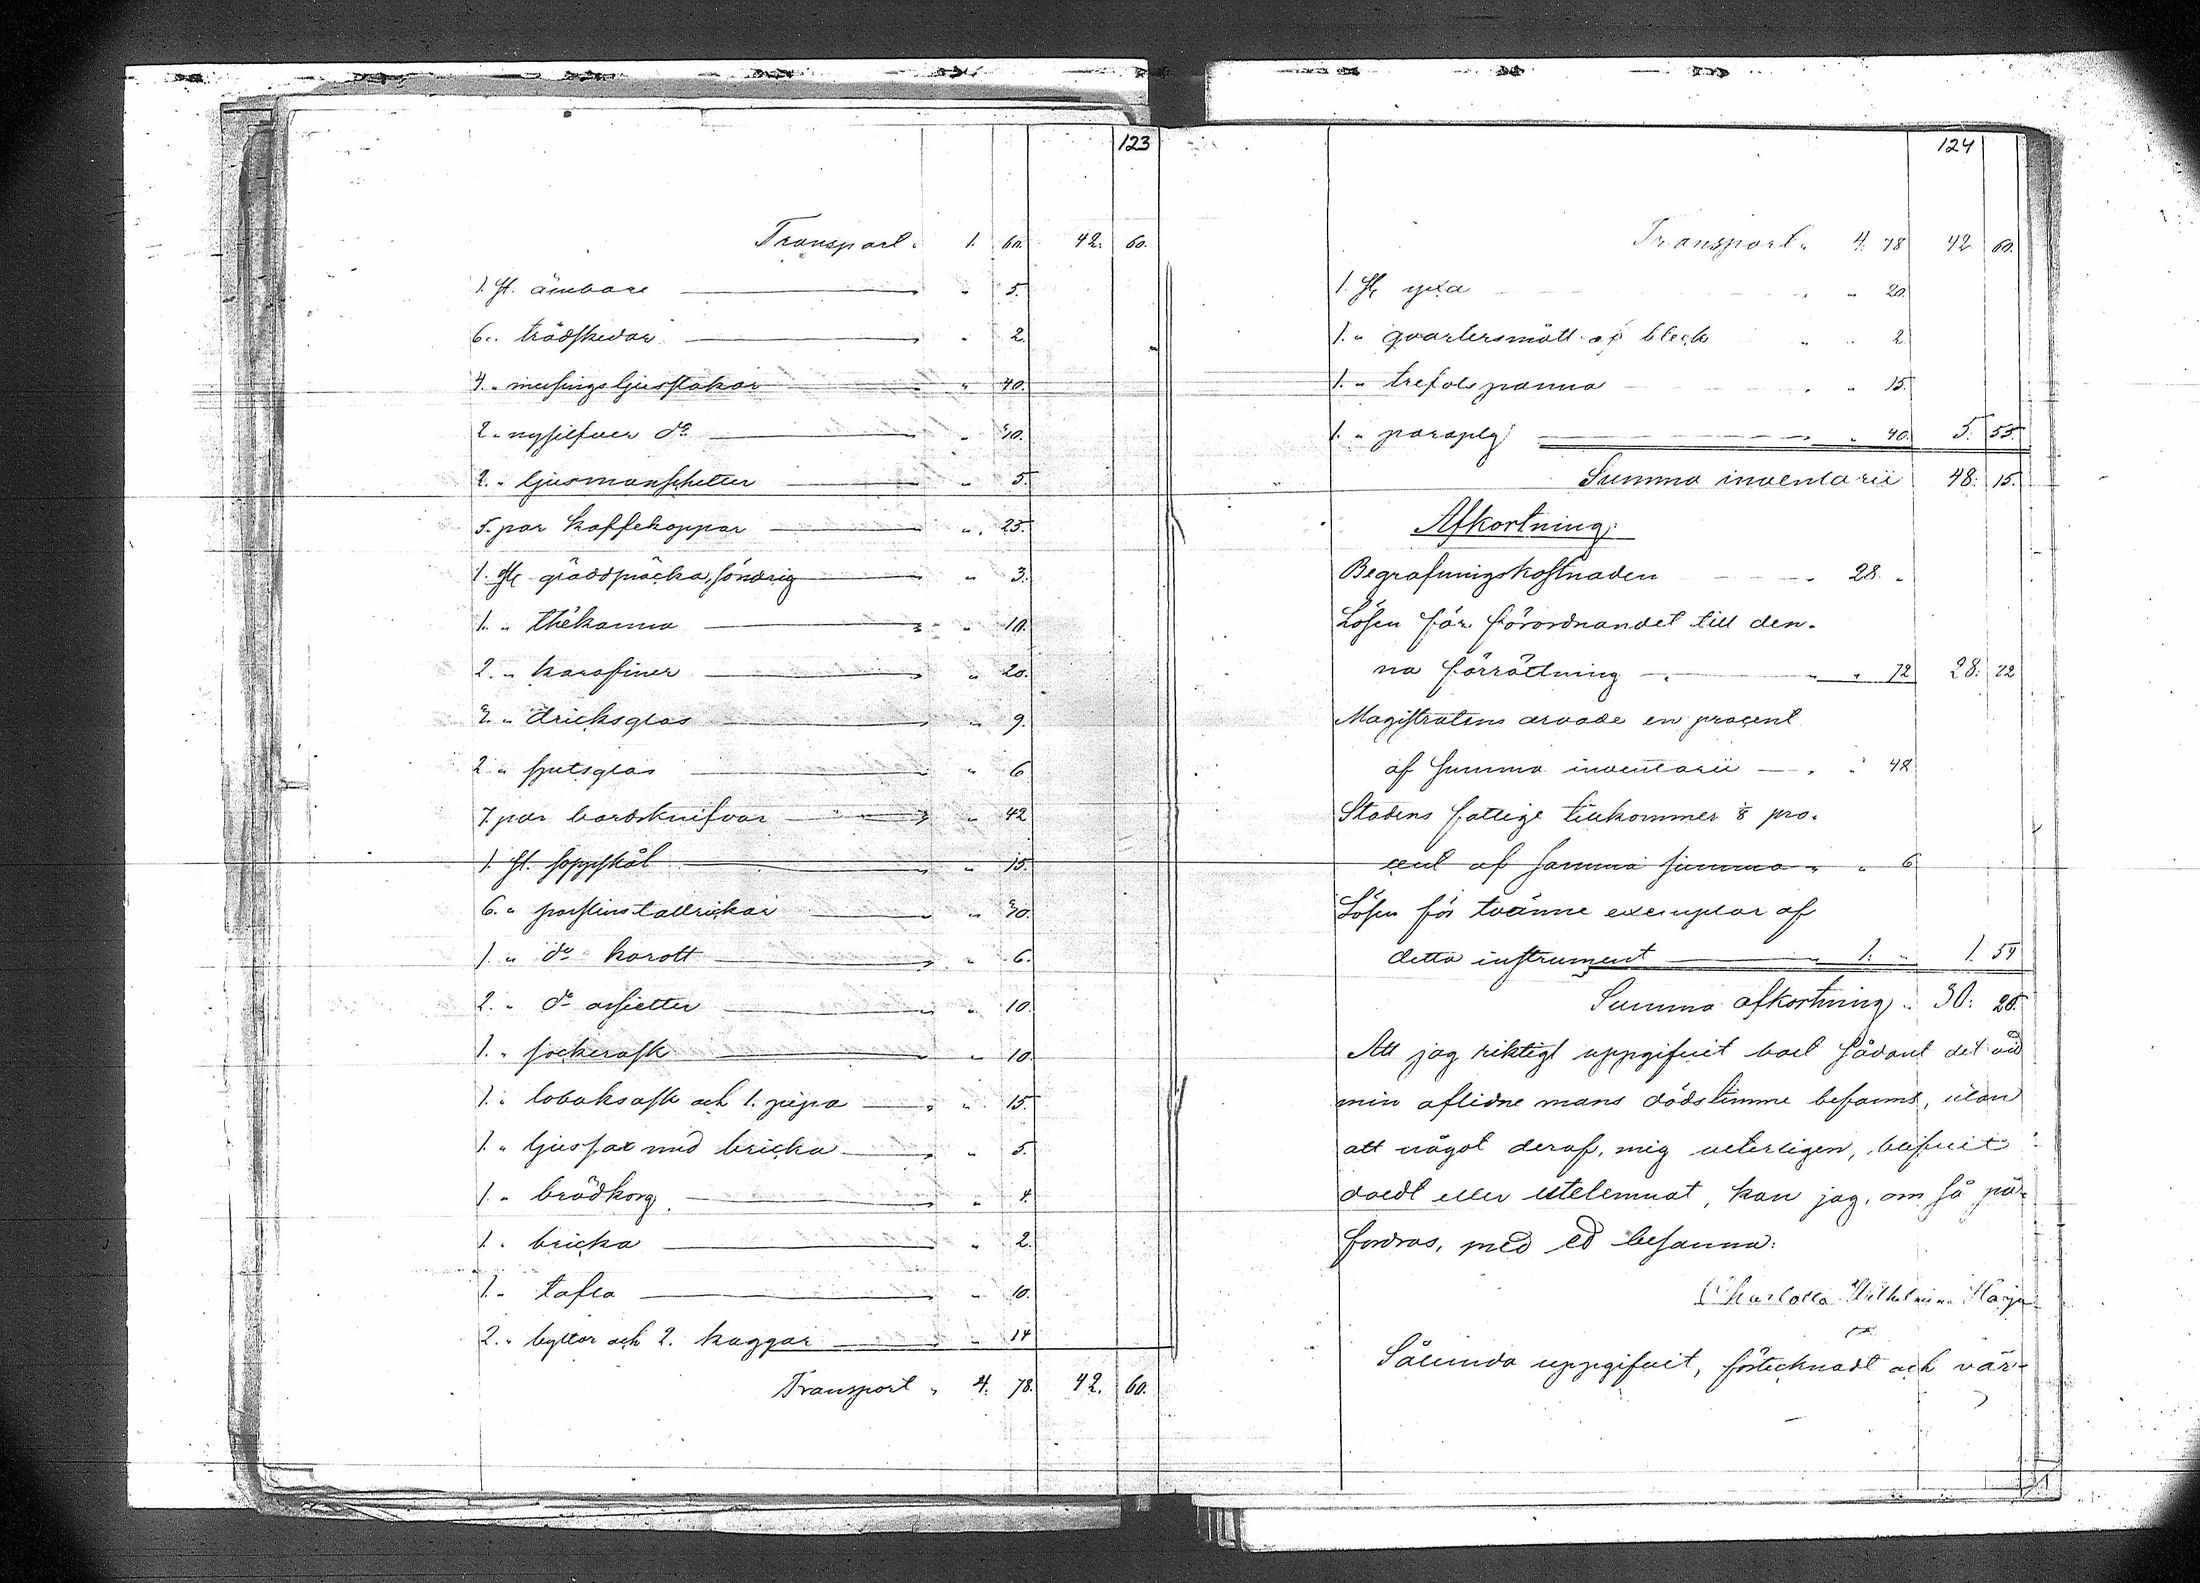 123
Transport „ 1. 60. 42. 60.
1. st. ämbare „ 5.
6 „ trädskedar „ 2.
4. „ messingsljusstakar „ 40.
2 „ nysilfver do „ 50.
2. „ ljusmanschetter „ 5.
5. par kaffekoppar „ 25.
1. st. gräddsnäcka, söndrig „ 3.
1. „ thékanna „ 10.
2. „ karafiner „ 20.
3. „ dricksglas „ 9.
2 „ spetsglas „ 6
7. par bordsknifvar „ 42
1. st. soppskål „ 15.
6. „ porslinstallrickar „ 30.
1 „ do karott „ 6.
2. „ do assietter „ 10.
1. „ sockerask „ 10
1. „ tobaksask och 1. pipa „ 15.
1. „ ljussax med bricka „ 5.
1. „ brödkorg „ 4.
1. „ bricka „ 2.
1. „ tafla „ 10.
2. „ byttor och 2. kaggar „ 14
Transport „ 4. 78. 42. 60.
124
Transport „ 4. 78 42 60.
1. st. yxa „ 20.
1. „ qvartersmått af bleck „ 2.
1. „ trefots panna „ 15.
1. „ paraply „ 40. 5. 55.
Summa inventarii 48. 15.
Afkortning:
Begrafningskostnaden 28. „
Lösen för förordnandet till den-
na förrättning „ 72 28. 72
Magistratens arvode en procent
af summa inventarii „ 48
Stadens fattige tillkommer 1/8 pro-
cent af samma summa „ 6
Lösen för tvänne exemplar af
detta instrument 1. „ 1. 54
Summa afkortning „ 30. 26.
Att jag riktigt uppgifvit boet sådant det vid
min aflidne mans dödstimme befanns, utan
att något deraf, mig veterligen, blifvit
doldt eller utelemnat, kan jag, om så på-
fordras, med ed besanna:
Charlotta Wilhelmina
Sålunda uppgifvit, förtecknadt och vär-